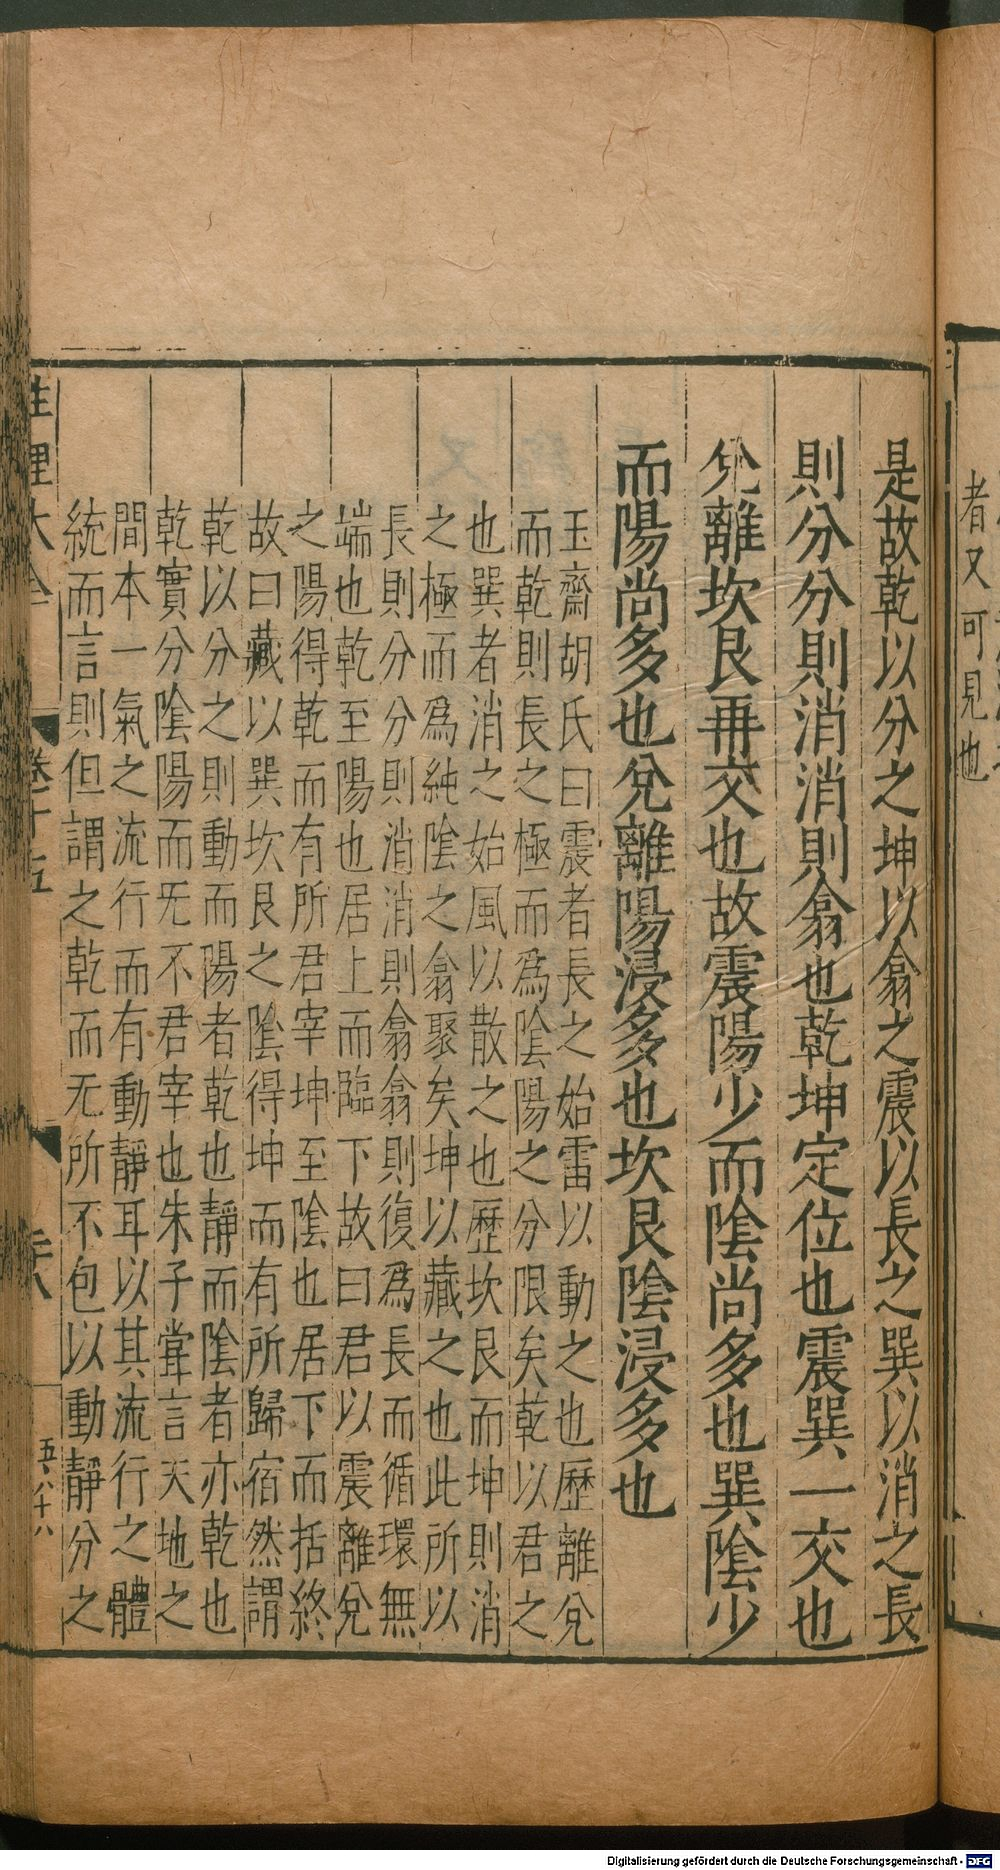 者又可見也
是故乾以分之坤以翕之震以長之巽以消之長
則分分則消消則翕也乾坤定位也震巽一交也
兊離坎艮再交也故震陽少而隂尚多也巽隂少
而陽尚多也兊離陽浸多也坎艮隂浸多也
玉齋胡氏曰震者長之始雷以動之也歷離兊
而乾則長之極而爲隂陽之分限矣乾以君之
也巽者消之始風以散之也歷坎艮而坤則消
之極而爲純隂之翕聚矣坤以藏之也此所以
長則分分則消消則翕翕則復爲長而循環無
端也乾至陽也居上而臨下故曰君以震離兊
之陽得乾而有所君宰坤至隂也居下而括終
故曰藏以巽坎艮之隂得坤而有所歸宿然謂
乾以分之則動而陽者乾也靜而隂者亦乾也
乾實分隂陽而无不君宰也朱子甞言天地之
間本一氣之流行而有動靜耳以其流行之體
統而言則但謂之乾而无所不包以動靜分之
性理大全
卷十五
二十八
五八十八
Digitalisierung gefördert durch die Deutsche Forschungsgemeinschaft - DFG